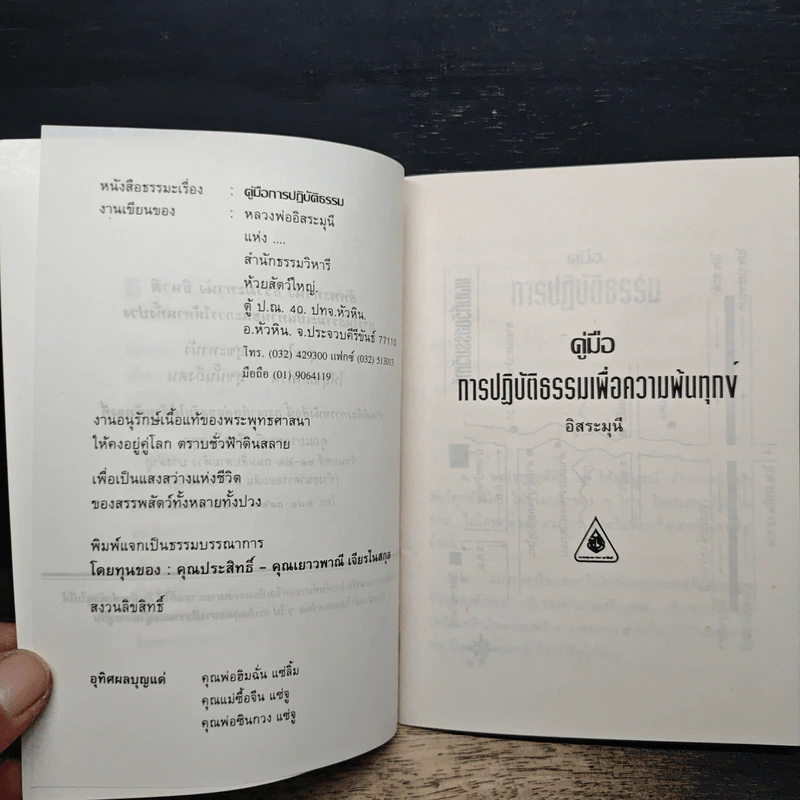 หนังสือธรรมะเรื่อง : คู่มือการปฏิบัติธรรม
งานเขียนของ : หลวงพ่ออิสระมุนี
แห่ง ....
สำนักธรรมวิหารี
ห้วยสัตว์ใหญ่.
ตู้ ป.ณ. 40. ปทจ.หัวหิน.
อ.หัวหิน. จ.ประจวบคีรีขันธ์ 77110
โทร. (032) 429300 แฟกซ์ (032) 513013
มือถือ (01) 9064119
งานอนุรักษ์เนื้อแท้ของพระพุทธศาสนา
ให้คงอยู่คู่โลก ตราบชั่วฟ้าดินสลาย
เพื่อเป็นแสงสว่างแห่งชีวิต
ของสรรพสัตว์ทั้งหลายทั้งปวง
พิมพ์แจกเป็นธรรมบรรณาการ
โดยทุนของ : คุณประสิทธิ์ – คุณเยาวพาณี เจียรไนสกุล
สงวนลิขสิทธิ์
อุทิศผลบุญแด่ คุณพ่อฮิมฉั่น แซ่ลิ้ม
คุณแม่ซื้อจีน แซ่จู
คุณพ่อซินกวง แซ่จู
คู่มือ
การปฏิบัติธรรมเพื่อความพ้นทุกข์
อิสระมุนี